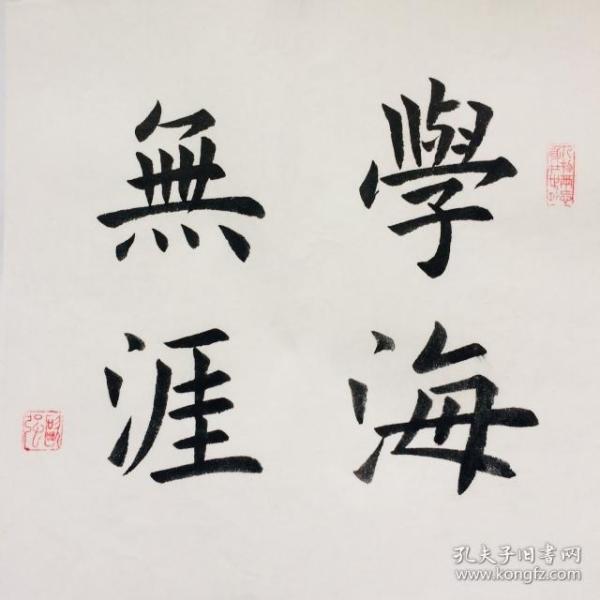 學海
無涯
孔夫子旧书网
www.kongfz.com